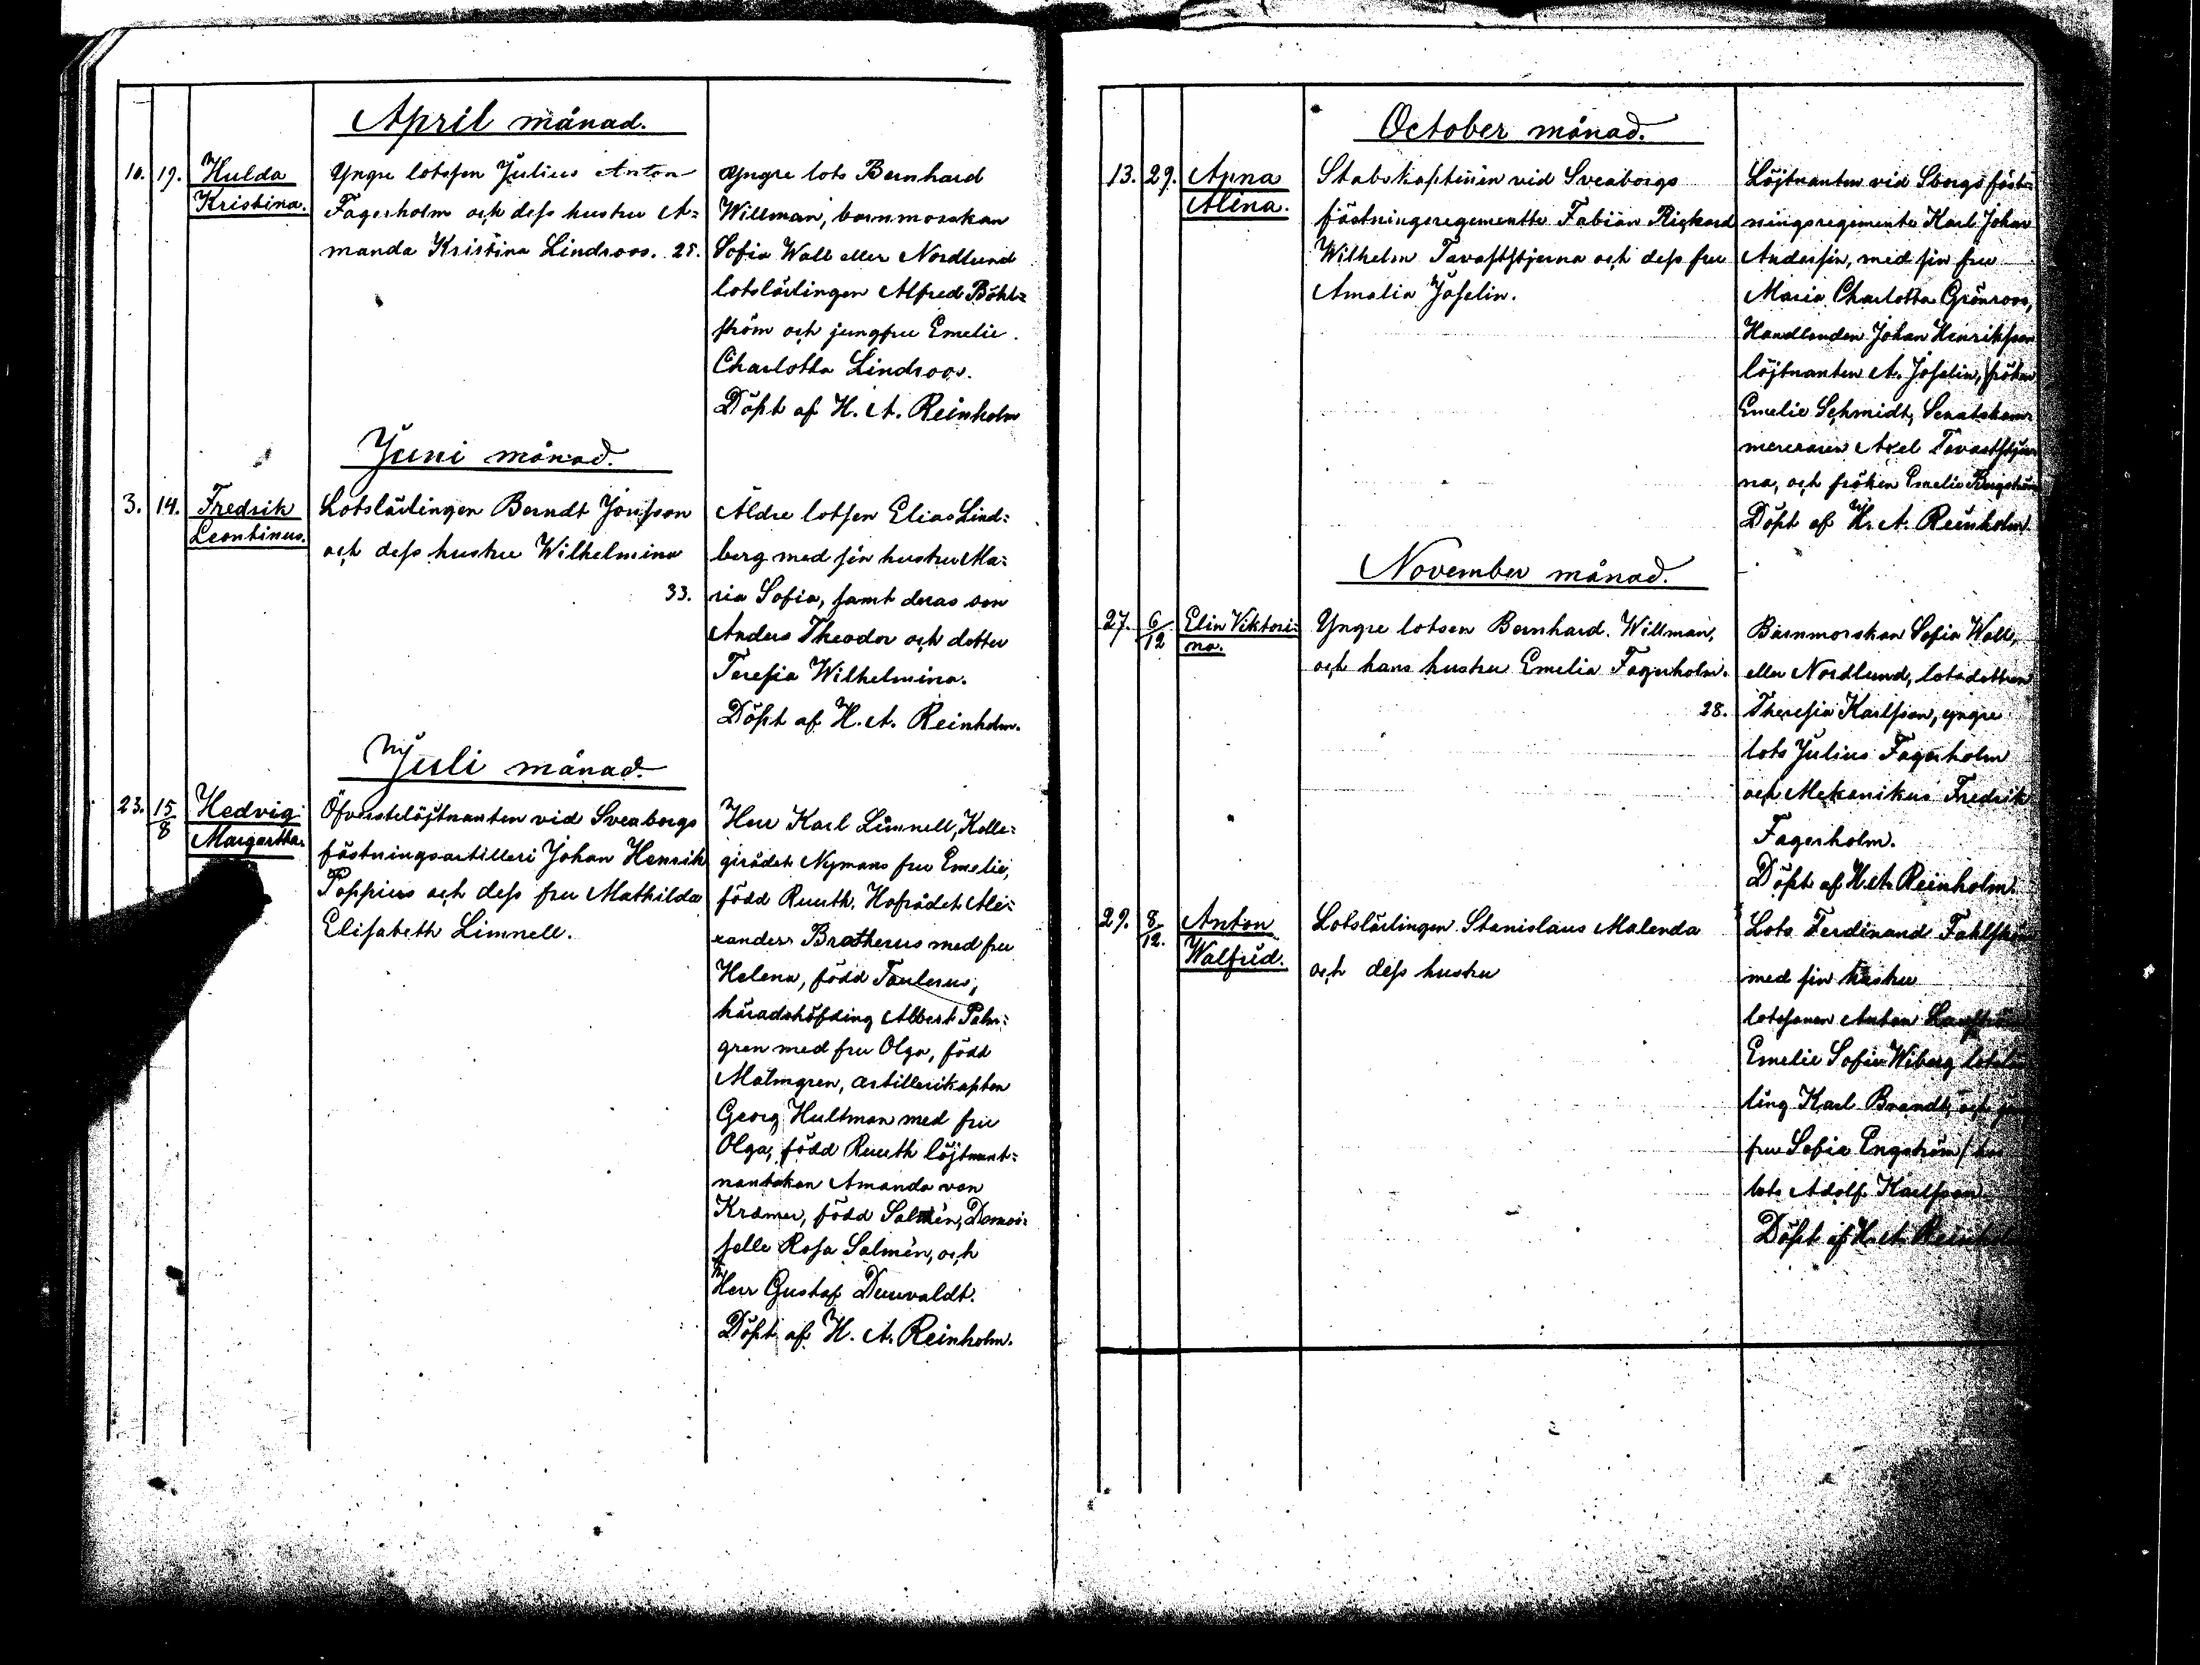 April månad.
10. 19. Hulda
Kristina.
Yngre lotsen Julius Anton
Fagerholm och dess hustru A=
manda Kristina Lindroos. 25.
Yngre lots Bernhard
Willman, barnmorskan
Sofia Wall eller Nordlund
lotslärlingen Alfred Böhl=
ström och jungfru Emelie
Charlotta Lindroos.
Döpt af H. A. Reinholm
Juni månad.
3. 14. Fredrik
Leontinus.
Lotslärlingen Berndt Jönsson
och dess hustru Wilhelmina
33.
Äldre lotsen Elias Lind=
berg med sin hustru Ma=
ria Sofia, samt deras son
Anders Theodor och dotter
Teresia Wilhelmina.
Döpt af H. A. Reinholm.
Juli månad.
23. 15/8 Hedvig
Margartha.
Öfverstelöjtnanten vid Sveaborgs
fästningsartilleri Johan Henrik
Poppius och dess fru Mathilda
Elisabeth Limnell.
Herr Karl Limnell, Kolle=
girådet Nymans fru Emelie,
född Ruuth, Hofrådet Ale=
xander Bratherus med fru
Helena, född Taulerus,
häradshöfding Albert Palm=
gren med fru Olga, född
Malmgren, artillerikapten
Georg Hultman med fru
Olga, född Ruuth löjtnant=
nantskan Amanda von
Kræmer, född Salmén, Demoi=
selle Rosa Salmén, och
Herr Gustaf Dunvaldt.
Döpt af H. A. Reinholm.
October månad.
13. 29. Anna
Alina.
Stabskaptenen vid Sveaborgs
fästningsregemente Fabian Rickard
Wilhelm Tavaststjerna och dess fru
Amalia Joselin.
Löjtnanten vid Sborgs fäst=
ningsregimente Karl Johan
Andersin, med sin fru
Maria Charlotta Grönroos,
Handlanden Johan Henriksson
löjtnanten A. Joselin, fröken
Emelie Schmidt, Senatskam=
mereraren Axel Tavaststjer
na, och fröken Emelie Bergström
Döpt af H. A. Reinholm.
November månad.
27. 6/12 Elin Viktori=
na.
Yngre lotsen Bernhard Willman,
och hans hustru Emelia Fagerholm.
28.
Barnmorskan Sofia Wall,
eller Nordlund, lotsdottren
Theresia Karlsson, yngre
lots Julius Fagerholm
och Mekanikus Fredrik
Fagerholm.
Döpt af H. A. Reinholm.
29. 8/12. Anton
Walfrid.
Lotslärlingen Stanislaus Malenda
och dess hustru
Lots Ferdinand
med sin hustru
lotssonen Anton
Emelie Sofia Wiberg
ling Karl Brandt, och
fru Sofia Engström
lots Adolf Karlsson
Döpt af H. A.